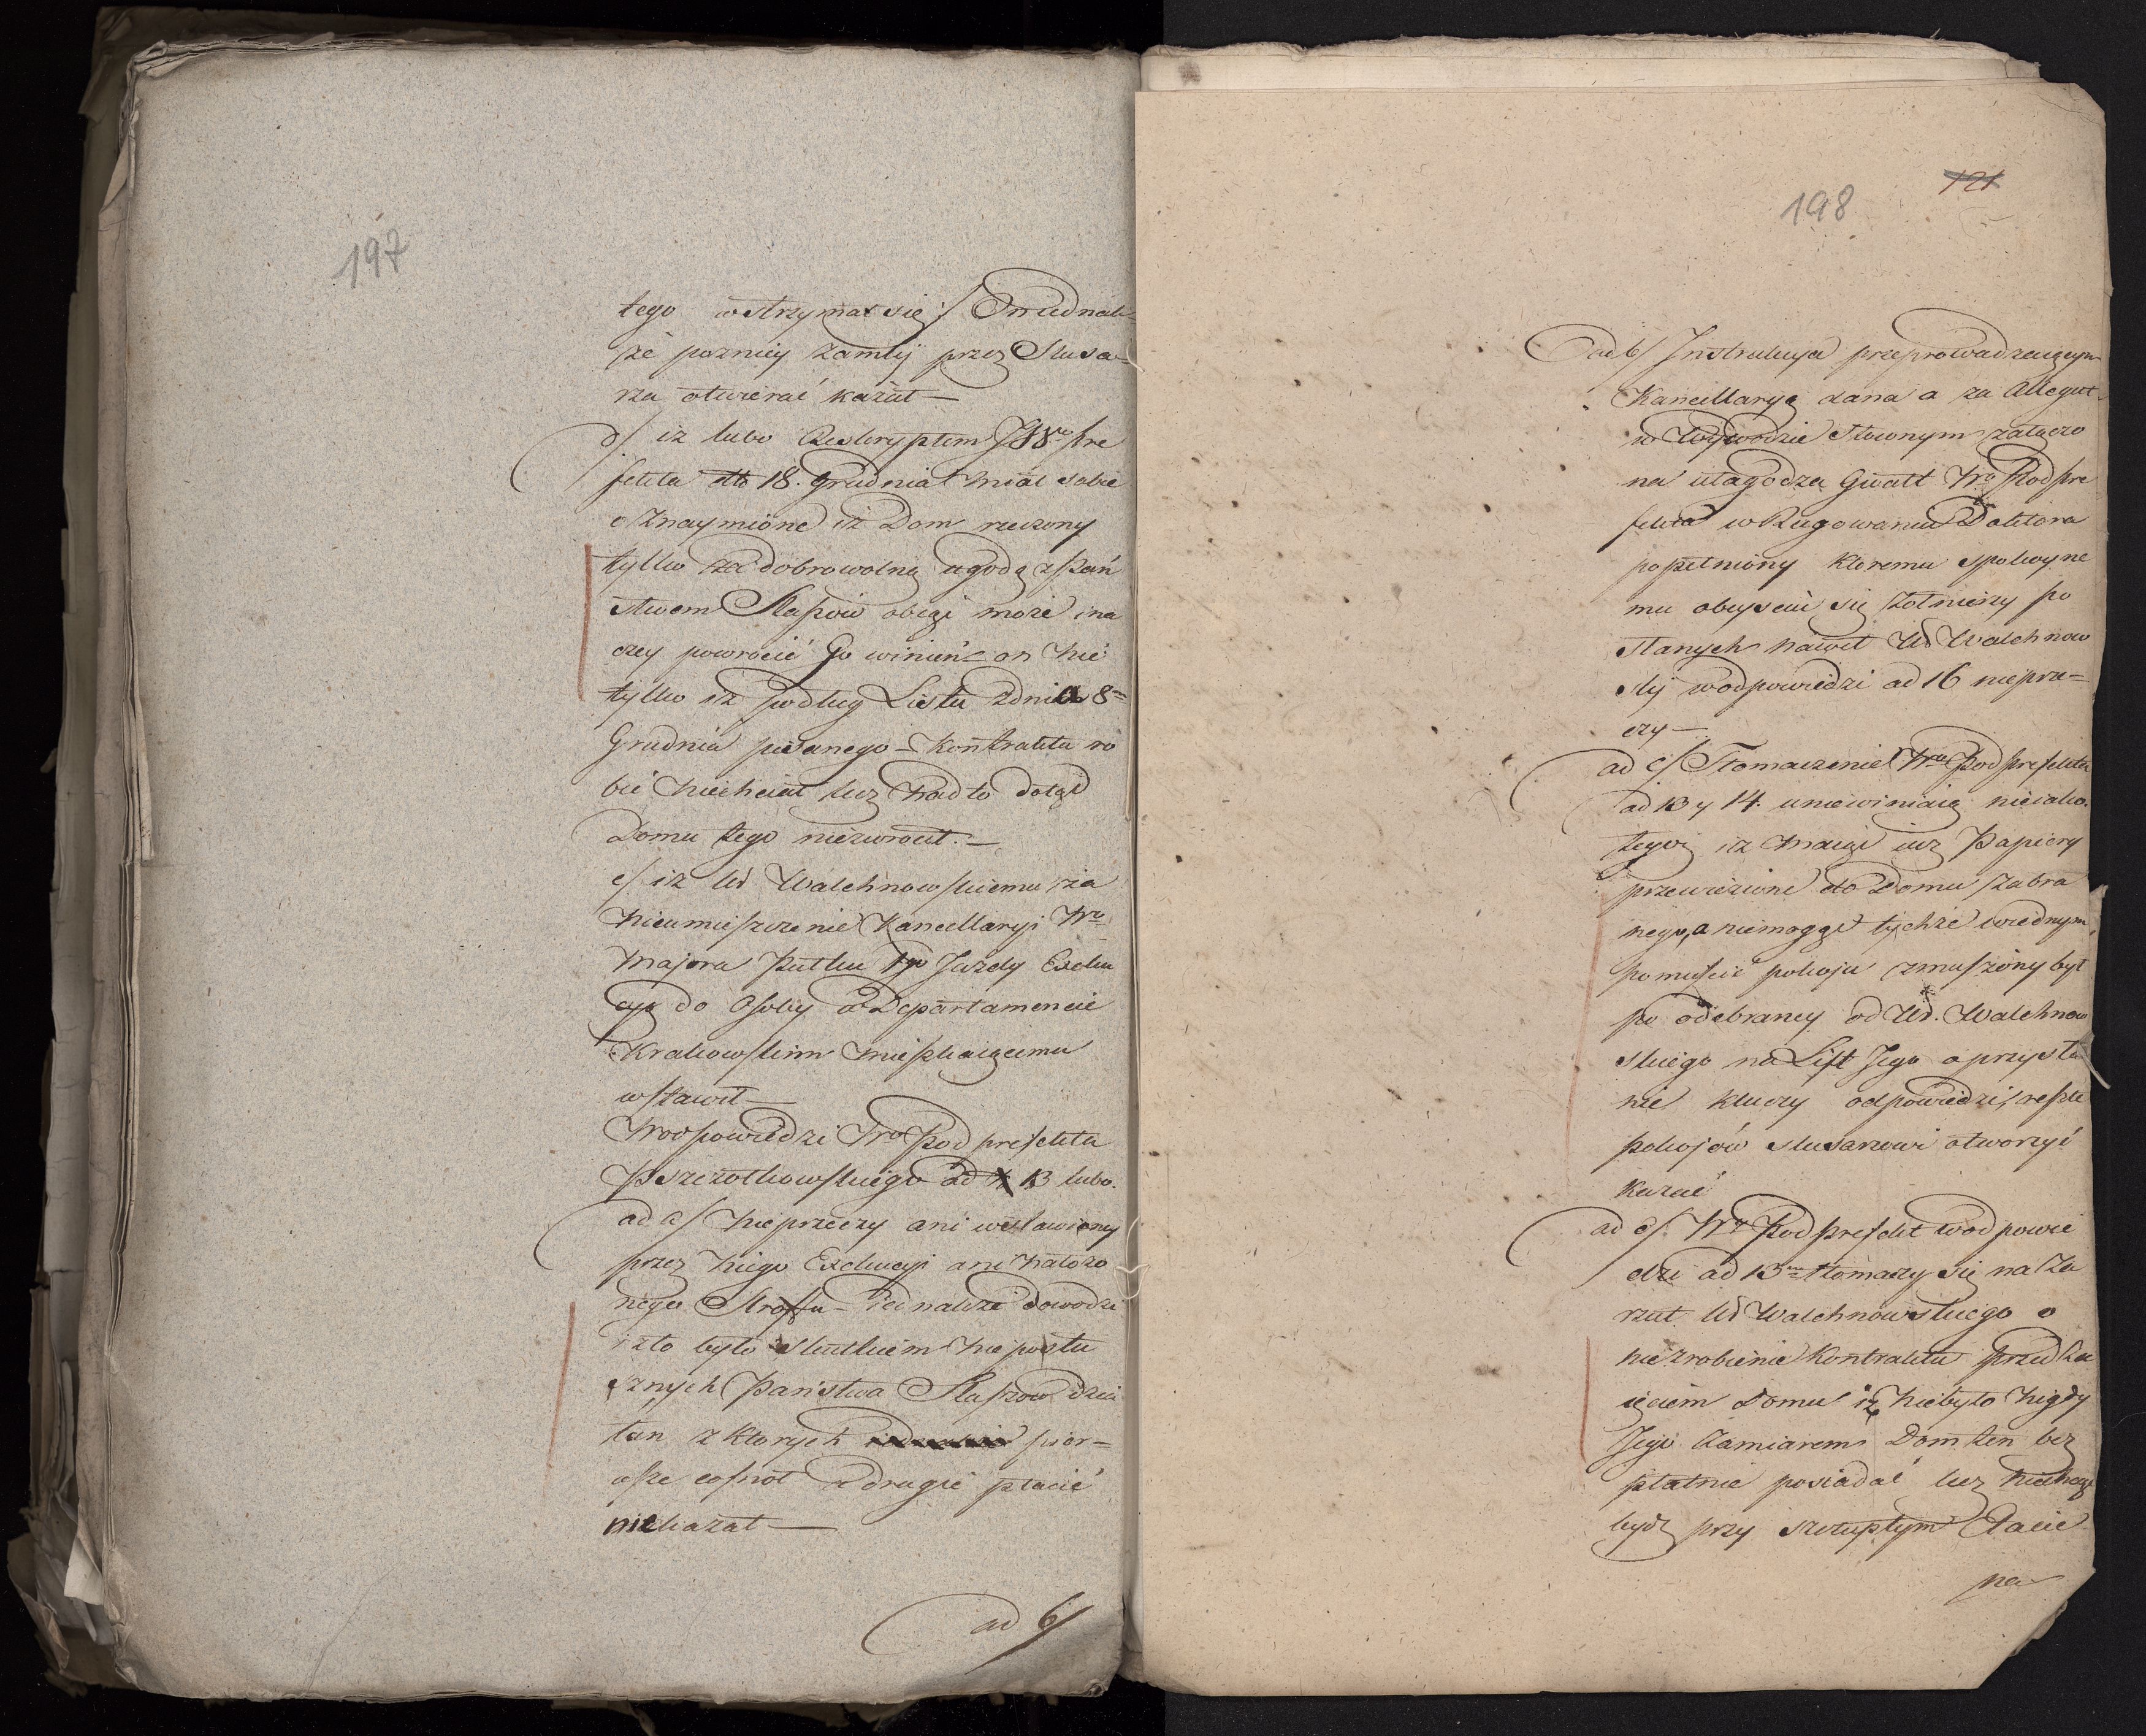 197
tego wstrzymał się / Trudnali
że pozniey zamki przez Slusa-
rza otwierać kazał —
d/ iz lubo Reskryptem JW Pre
fekta dto 18. Grudnia miał sobie
oznaymione iz Dom rzeczony
tylko za dobrowolną ugodą z Pań
stwem Slaskow obiąć może ina
czey powrocić Go winien on nie
tylko iz podług Listu z dnia 8
Grudnia pisanego – Kontraktu ro
bić niechciał lecz nadto dotąd
Domu tego niezwrocił. —
e/ iz Ur Walchnowskiemu za
nieumieszczenie Kancellaryi Wo
Majora Pułku 1go Jazdy Exeku
cyą do Osoby w Departamencie
Krakowskim mieszkaiącemu
wstawił —
W odpowiedzi Wo Pod prefekta
Pszczołkowskiego ad 13 lubo
ad a/ nieprzeczy ani wstawioney
przez niego Exekucyi ani nałożo
nego Stroffu – iednakże dowodzi
iż to było skutkiem nieposłu
sznych Państwa Slaskow dzia
łań z ktorych pier-
wsze cofnoł a drugie płacić
niekazał —
ad b/
121
198
ad b/ Instrukcya przeprowadzaiącym
Kancellaryą dana a za Allegat
w Wywodzie Słownym załączo
na ułagodza Gwałt Wo Podpre
fekta w Rugowaniu Doktora
popełniony ktoremu spokoyne
mu obeyściu się żołnierzy po
słanych nawet Ur Walchnow
ski w odpowiedzi ad 16 nieprze=
czy —
ad c/ Tłomaczenie Wo Podprefekta
ad 13 y 14. uniewiniaią nieiako
tegoż iz maiąc iuż Papiery
przewiezione do Domu zabra
nego, a niemogąc tychże w iednym
pomieścić pokoju zmuszony był
po odebraney od Ur. Walchnow
skiego na List Jego o przysła
nie kluczy odpowiedzi, resztę
pokojów slusarzowi otworzyć
kazać
ad d/ Wo Podprefekt w odpowie
dzi ad 13 tłomaczy się na za
rzut Ur Walchnowskiego o
niezrobienie Kontraktu przed za
ięciem Domu iż niebyło nigdy
Jego zamiarem Dom ten bez
płatnie posiadać lecz niechcąc
bydź przy szczupłym Placie
na